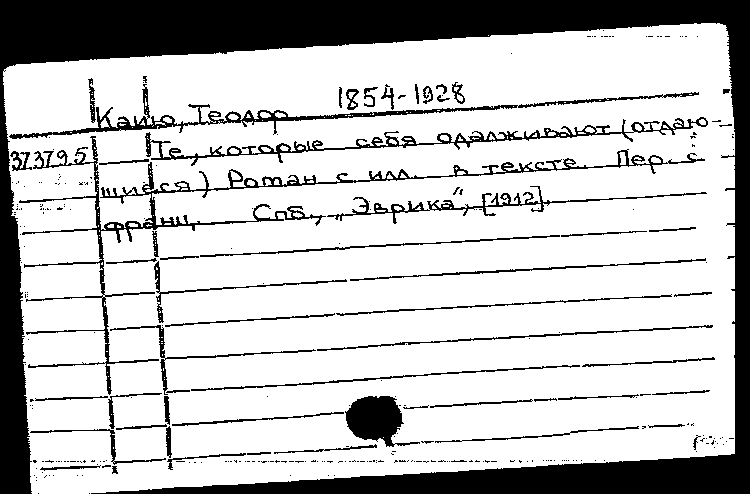 Каию, Теодор 1854-1928
373795 Те, которые себя одалживают (отдаю-
щиеся) Роман с илл. в тексте. Пер. с
франц. Спб., „Эврика“, [1912].